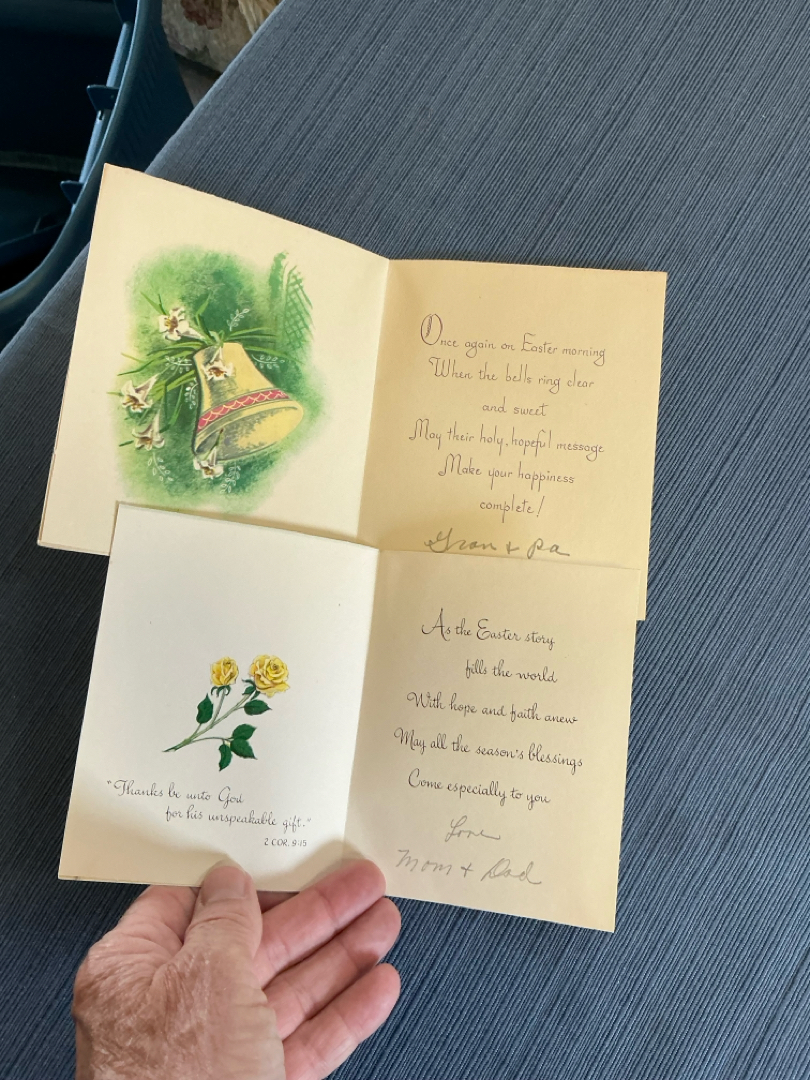 Once again on Easter morning
When the bells ring clear
and sweet
May their holy, hopeful message
Make your happiness
complete!
Gran + Pa
"Thanks be unto God
for his unspeakable gift."
2 COR. 9:15
As the Easter story
fills the world
With hope and faith anew
May all the season's blessings
Come especially to you
Love
Mom + Dad